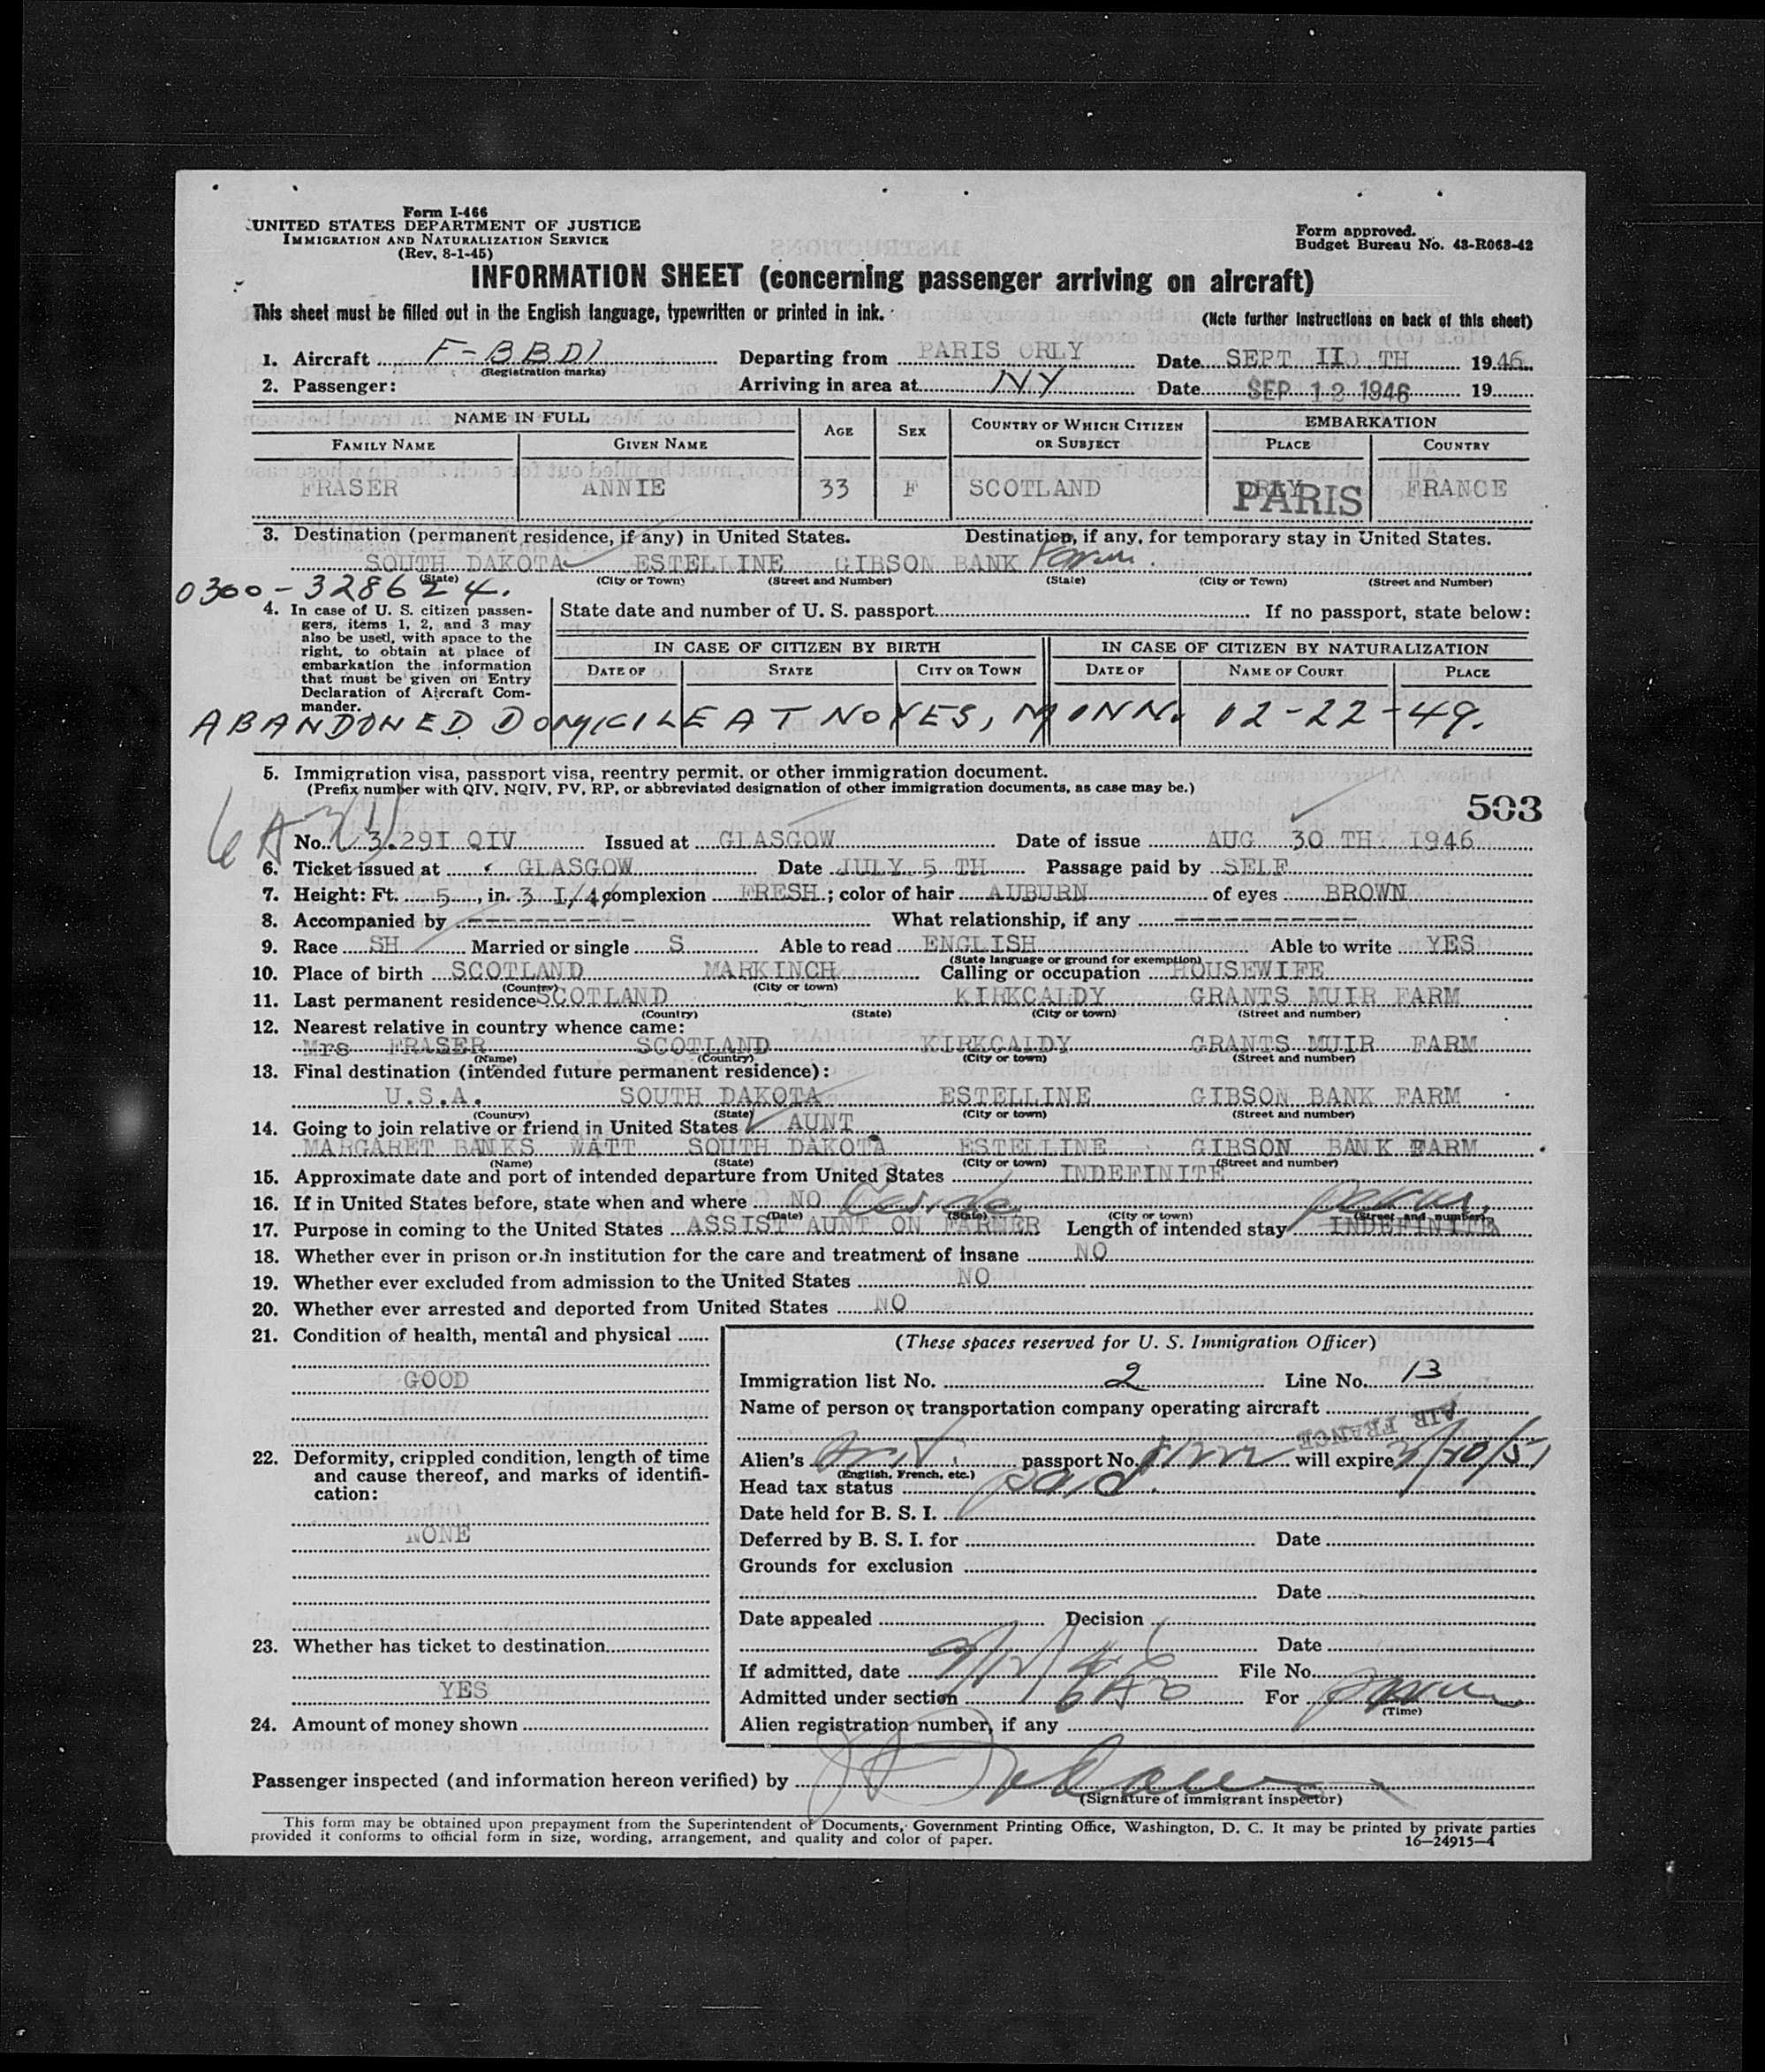 Form I-466
UNITED STATES DEPARTMENT OF JUSTICE
IMMIGRATION AND NATURALIZATION SERVICE
(Rev. 8-1-45)
Form approved.
Budget Bureau No. 43-R063-42
INFORMATION SHEET (concerning passenger arriving on aircraft)
This sheet must be filled out in the English language, typewritten or printed in ink.
(Note further instructions on back of this sheet)
1. Aircraft F-BBDI Departing from PARIS ORLY Date SEPT II TH 1946
(Registration marks)
2. Passenger: Arriving in area at NY Date SEP 12 1946 19
NAME IN FULL AGE SEX COUNTRY OF WHICH CITIZEN OR SUBJECT EMBARKATION
FAMILY NAME GIVEN NAME PLACE COUNTRY
FRASER ANNIE 33 F SCOTLAND ORLY PARIS FRANCE
3. Destination (permanent residence, if any) in United States. Destination, if any, for temporary stay in United States.
SOUTH DAKOTA ESTELLINE GIBSON BANK Farm.
(State) (City or Town) (Street and Number) (State) (City or Town) (Street and Number)
0300-328624.
4. In case of U. S. citizen passengers, items 1, 2, and 3 may also be used, with space to the right, to obtain at place of embarkation the information that must be given on Entry Declaration of Aircraft Commander.
State date and number of U. S. passport If no passport, state below:
IN CASE OF CITIZEN BY BIRTH IN CASE OF CITIZEN BY NATURALIZATION
DATE OF STATE CITY OR TOWN DATE OF NAME OF COURT PLACE
ABANDONED DOMICILE AT NOYES, MINN. 12-22-49.
5. Immigration visa, passport visa, reentry permit, or other immigration document.
(Prefix number with QIV, NQIV, PV, RP, or abbreviated designation of other immigration documents, as case may be.)
503
No. 3.29I QIV Issued at GLASGOW Date of issue AUG 30 TH 1946
6. Ticket issued at GLASGOW Date JULY 5 TH Passage paid by SELF
7. Height: Ft. 5, in. 3 I/4 complexion FRESH; color of hair AUBURN of eyes BROWN
8. Accompanied by ---------- What relationship, if any -----------
9. Race SH Married or single S Able to read ENGLISH Able to write YES
(State language or ground for exemption)
10. Place of birth SCOTLAND MARKINCH Calling or occupation HOUSEWIFE
(Country) (City or town)
11. Last permanent residence SCOTLAND KIRKCALDY GRANTS MUIR FARM
(Country) (State) (City or town) (Street and number)
12. Nearest relative in country whence came:
Mrs FRASER SCOTLAND KIRKCALDY GRANTS MUIR FARM
(Name) (Country) (City or town) (Street and number)
13. Final destination (intended future permanent residence):
U.S.A. SOUTH DAKOTA ESTELLINE GIBSON BANK FARM
(Country) (State) (City or town) (Street and number)
14. Going to join relative or friend in United States AUNT
MARGARET BANKS WATT SOUTH DAKOTA ESTELLINE GIBSON BANK FARM
(Name) (State) (City or town) (Street and number)
15. Approximate date and port of intended departure from United States INDEFINITE
16. If in United States before, state when and where NO
(Date) (State) (City or town) (Street and number)
17. Purpose in coming to the United States ASSIST AUNT ON FARMER Length of intended stay INDEFINITE
18. Whether ever in prison or in institution for the care and treatment of insane NO
19. Whether ever excluded from admission to the United States NO
20. Whether ever arrested and deported from United States NO
21. Condition of health, mental and physical
GOOD
22. Deformity, crippled condition, length of time and cause thereof, and marks of identification:
NONE
23. Whether has ticket to destination
YES
24. Amount of money shown
(These spaces reserved for U. S. Immigration Officer)
Immigration list No. 2 Line No. 13
Name of person or transportation company operating aircraft
AIR FRANCE
Alien's passport No. will expire
(English, French, etc.)
Head tax status paid.
Date held for B. S. I.
Deferred by B. S. I. for Date
Grounds for exclusion
Date
Date appealed Decision
Date
If admitted, date 9/12/46 File No.
Admitted under section For
(Time)
Alien registration number, if any
Passenger inspected (and information hereon verified) by
(Signature of immigrant inspector)
This form may be obtained upon prepayment from the Superintendent of Documents, Government Printing Office, Washington, D. C. It may be printed by private parties
provided it conforms to official form in size, wording, arrangement, and quality and color of paper.
16—24915-4